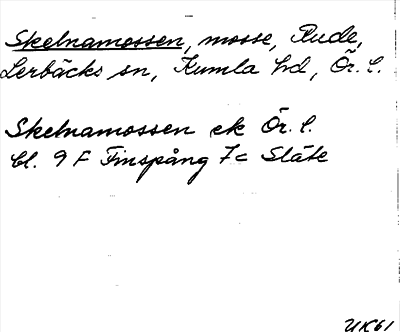 Skelnamossen, mosse, Rude,
Lerbäcks sn, Kumla hd, Ör. l.
Skelnamossen ek Ör. l.
bl. 9 F Finspång 7c Släte
UK61